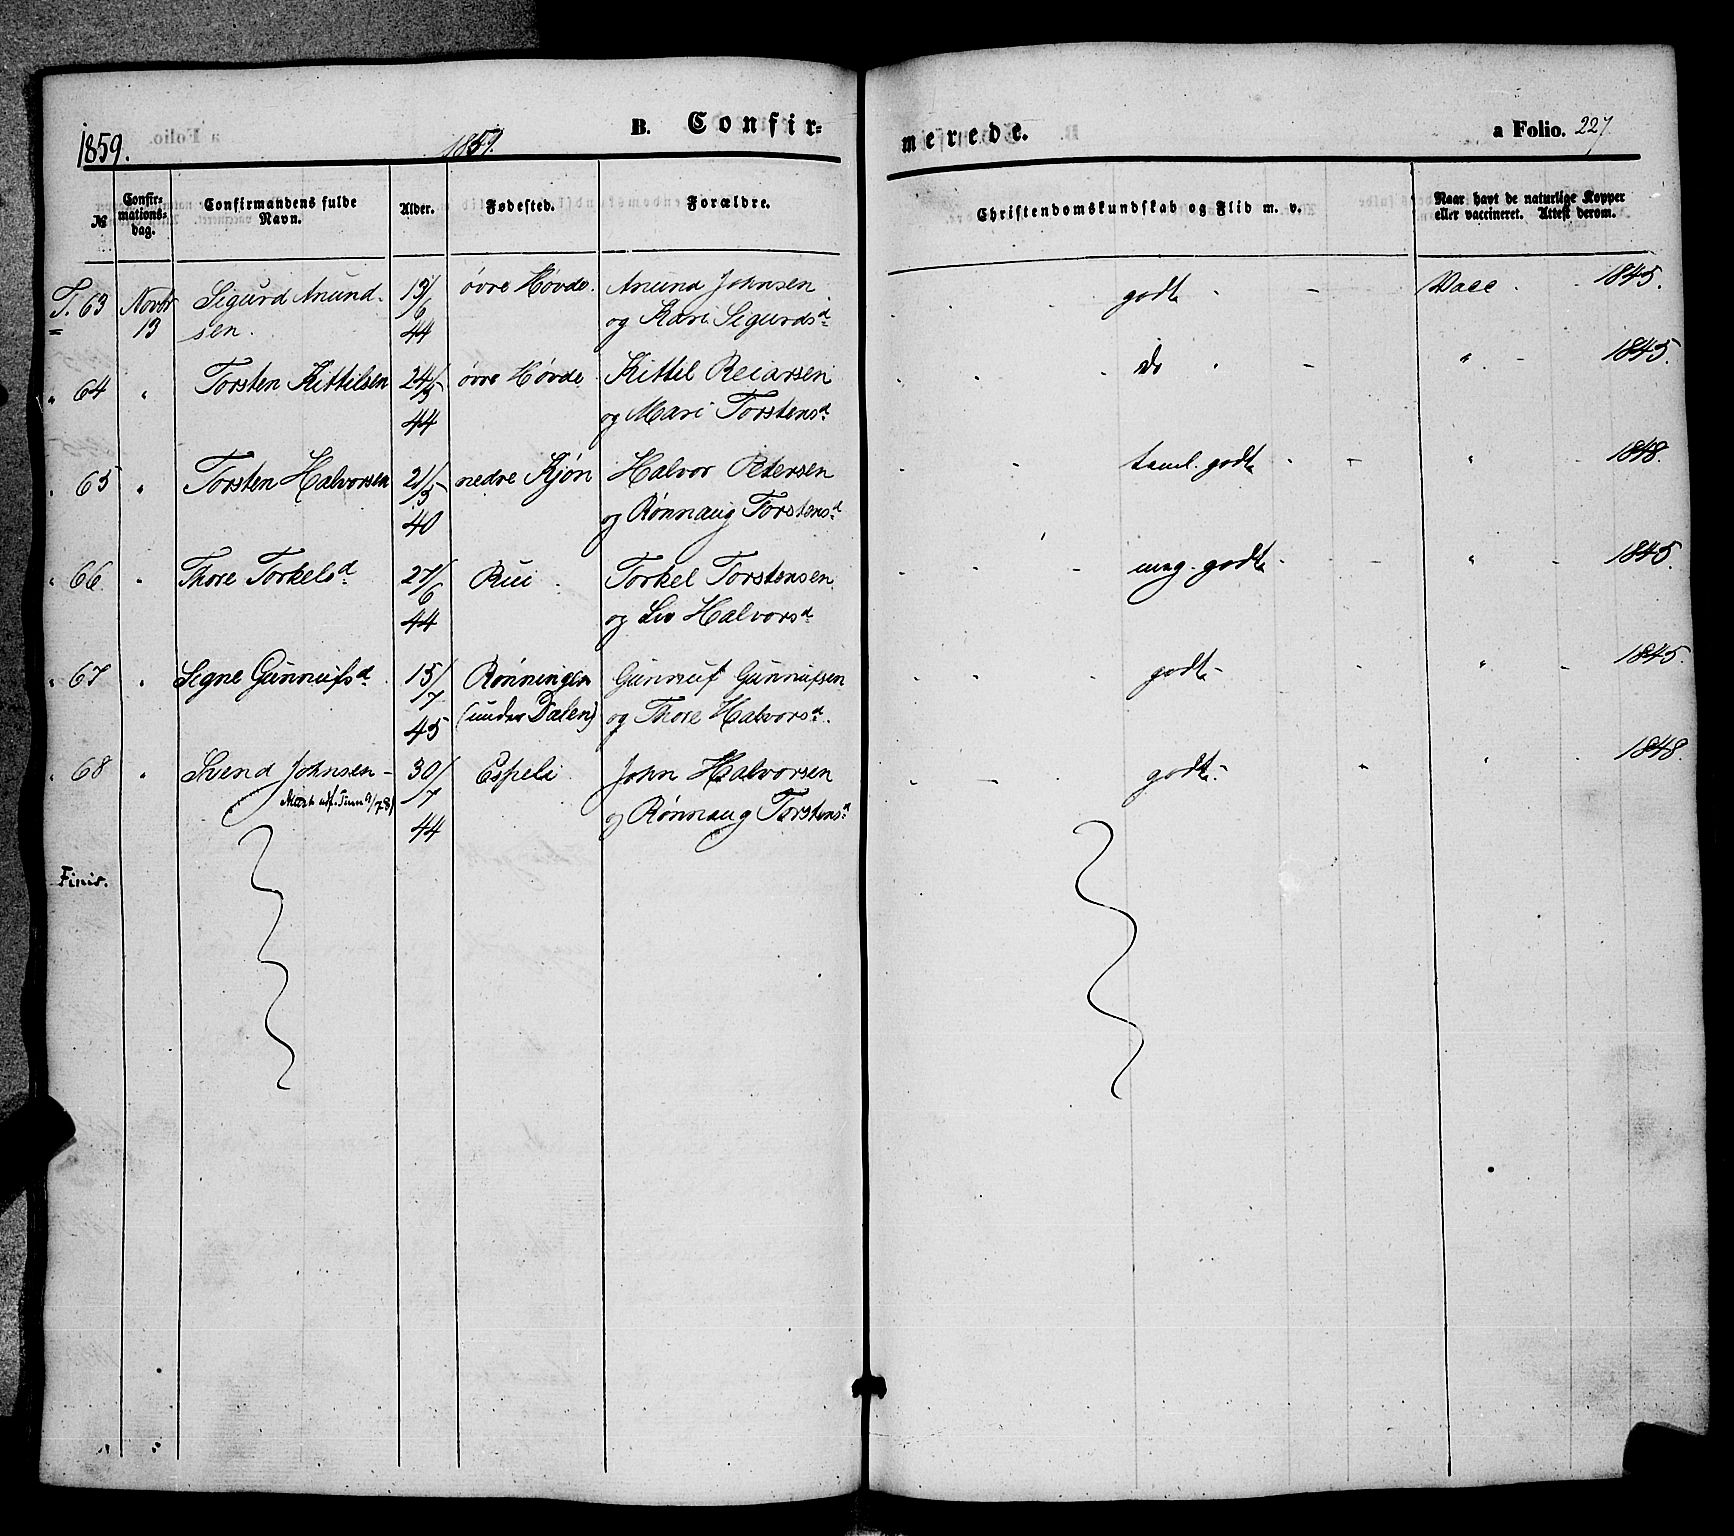 1859. 1859. B. Confir= merede. a Folio. 227.
№ Confirmations-dag. Confirmandens fulde Navn. Alder. Fødested. Forældre. Christendomskundskab og Flid m. v. Naar havt de naturlige Kopper eller vaccineret. Attest derom.
T. 63 Novbr Sigurd Anund- 13/ øvre Høvde. Anund Johnsen godt - - Vacc. - 1845.
= 13 sen. 6 og Kari Sigurdsd.
44
" 64 " Torsten Kittilsen 24/5 øvre Høvde Kittil Reiarsen Do - " - 1845.
44 og Mari Torstensd.
" 65 " Torsten Halvorsen 21/5 nedre Kjøn Halvor Petersen taml. godt - - " 1848.
40 og Rønnaug Torstensd.
" 66. " Thore Torkelsd. 27/6 Rui Torkel Torstensen meg. godt - - " 1845.
44 og Liv Halvorsd.
" 67 " Signe Gunnufsd. 15/ Rønningen Gunnuf Gunnufsen godt - " - 1845.
7 (under Dalen) og Thore Halvorsd.
45
" 68 " Svend Johnsen - 30/ Espeli John Halvorsen godt. - " 1848.
7 og Rønnaug Torstensd.
44
Finis.